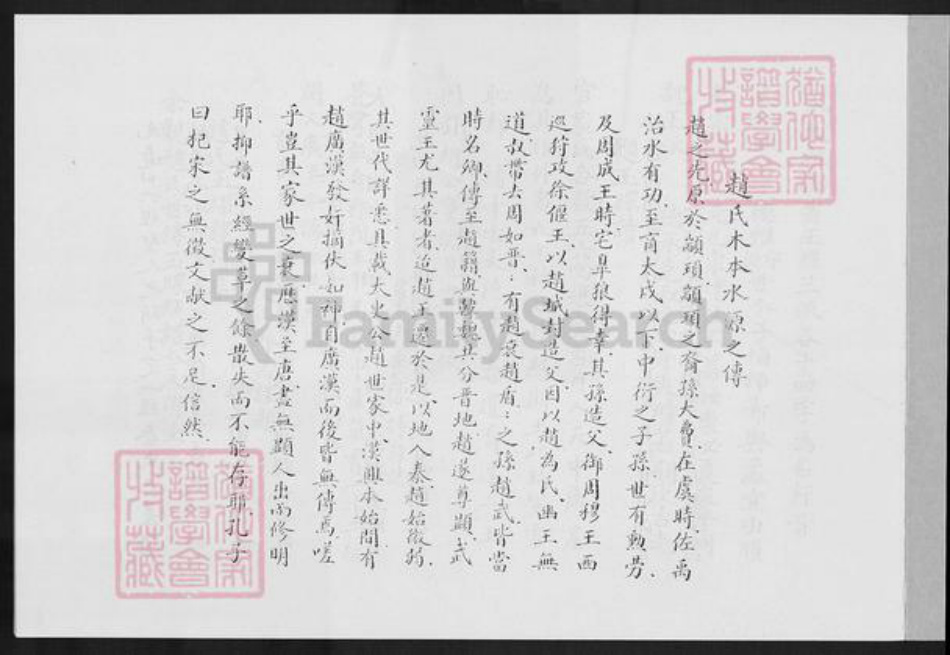 趙氏木本水源之傳
趙之先原於顓頊顓頊之裔孫大費在虞時佐禹
治水有功、至商太戊以下中衍之子孫、世有勲勞、
及周成王時、宅皐狼得幸、其孫造父、御周穆王西
巡狩攻徐偃王、以趙城封造父、因以趙為氏、幽王無
道、叔帶去周如晋、有趙衰趙盾、:之孫趙武、皆當
時名卿、傳至趙籍、與韓魏共分晋地、趙遂尊顯、武
靈王尤其著者、迨趙王遷於是、以地入秦、趙始微弱、
其世代詳悉、具載太史公趙世家中、漢興本始間、有
趙廣漢發奸摘伏如神、自廣漢而後皆無傳焉、嗟
乎豈其家世之衰、歷漢至唐、盡無顯人出而修明
耶、抑譜系經變革之餘、散失而不能存耶、孔子
曰杞宋之無徵文献之不足、信然、
猶他家
譜學會
收藏
猶他家
譜學會
收藏
FamilySearch